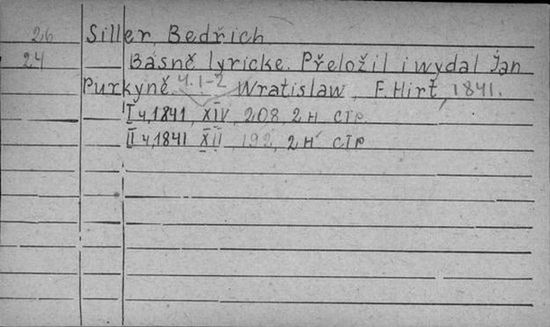 26 Siller, Bedřich
24 Básně lyricke. Přeložil i wydal Jan
Purkyně. Ч. 1-2 Wratislaw, F. Hirt, 1841.
I ч, 1841, XIV, 208, 2 н стр
II ч, 1841 XII 192, 2 н стр